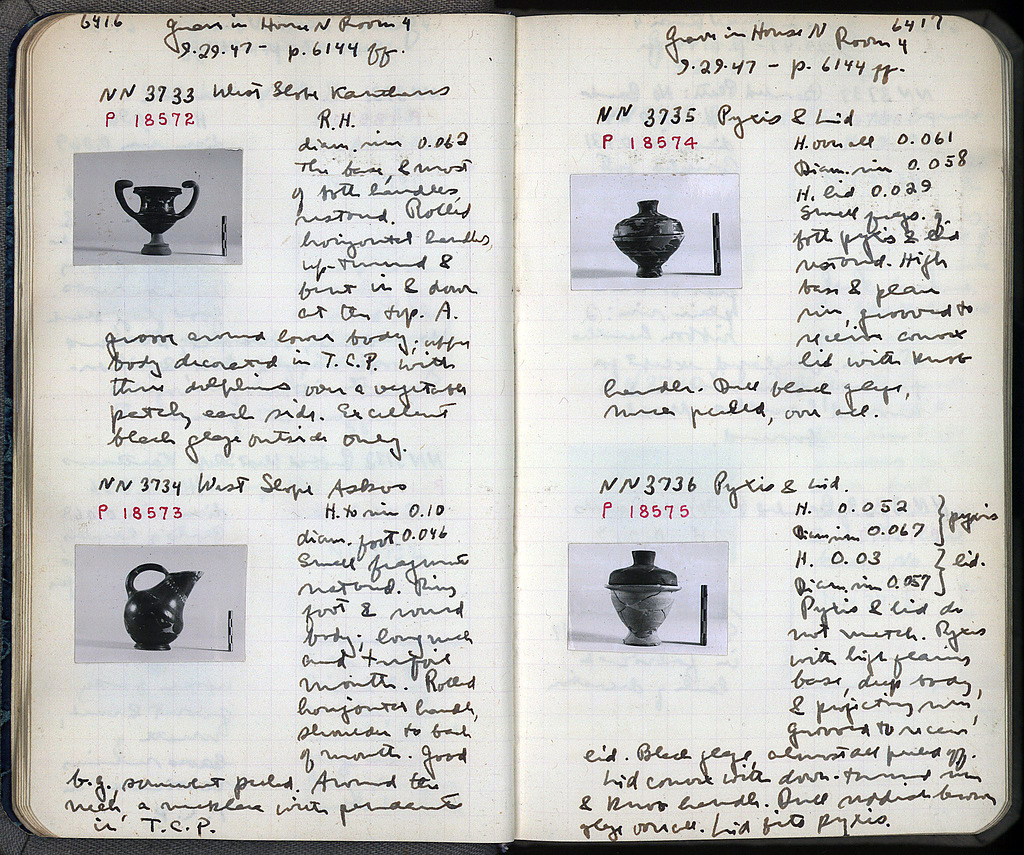 6416
Grave in House N Room 4
9.29.47 - p. 6144 ff.
NN 3733 West Slope Kantharos
P 18572
R.H.
diam. rim 0.062
The base, & most
of both handles
restored. Rolled
horizontal handles,
up-turned &
bent in & down
at the top. A
groove around lower body; upper
body decorated in T.C.P. with
three dolphins over a vegetable
patch, each side. Excellent
black glaze outside only.
NN 3734 West Slope Askos
P 18573
H. to rim 0.10
diam. foot 0.046
Small fragment
restored. Ring
foot & round
body; long neck
and trefoil
mouth. Rolled
horizontal handle,
shoulder to back
of mouth. Good
b.g., somewhat peeled. Around the
neck a necklace with pendants
in T.C.P.
6417
Grave in House N Room 4
9.29.47 - p. 6144 ff.
NN 3735 Pyxis & Lid
P 18574
H. overall 0.061
Diam. rim 0.058
H. lid 0.029
Small frags. of
both pyxis & lid
restored. High
base & plain
rim, grooved to
receive convex
lid with knob
handle. Dull black glaze,
much peeled, over all.
NN 3736 Pyxis & Lid.
P 18575
H. 0.052
Diam. rim 0.067 } pyxis
H. 0.03
Diam. rim 0.057 } lid.
Pyxis & lid do
not match. Pyxis
with high flaring
base, deep body,
& projecting rim,
grooved to receive
lid. Black glaze, almost all peeled off.
Lid convex with down-turned rim
& knob handle. Dull reddish brown
glaze overall. Lid fits pyxis.